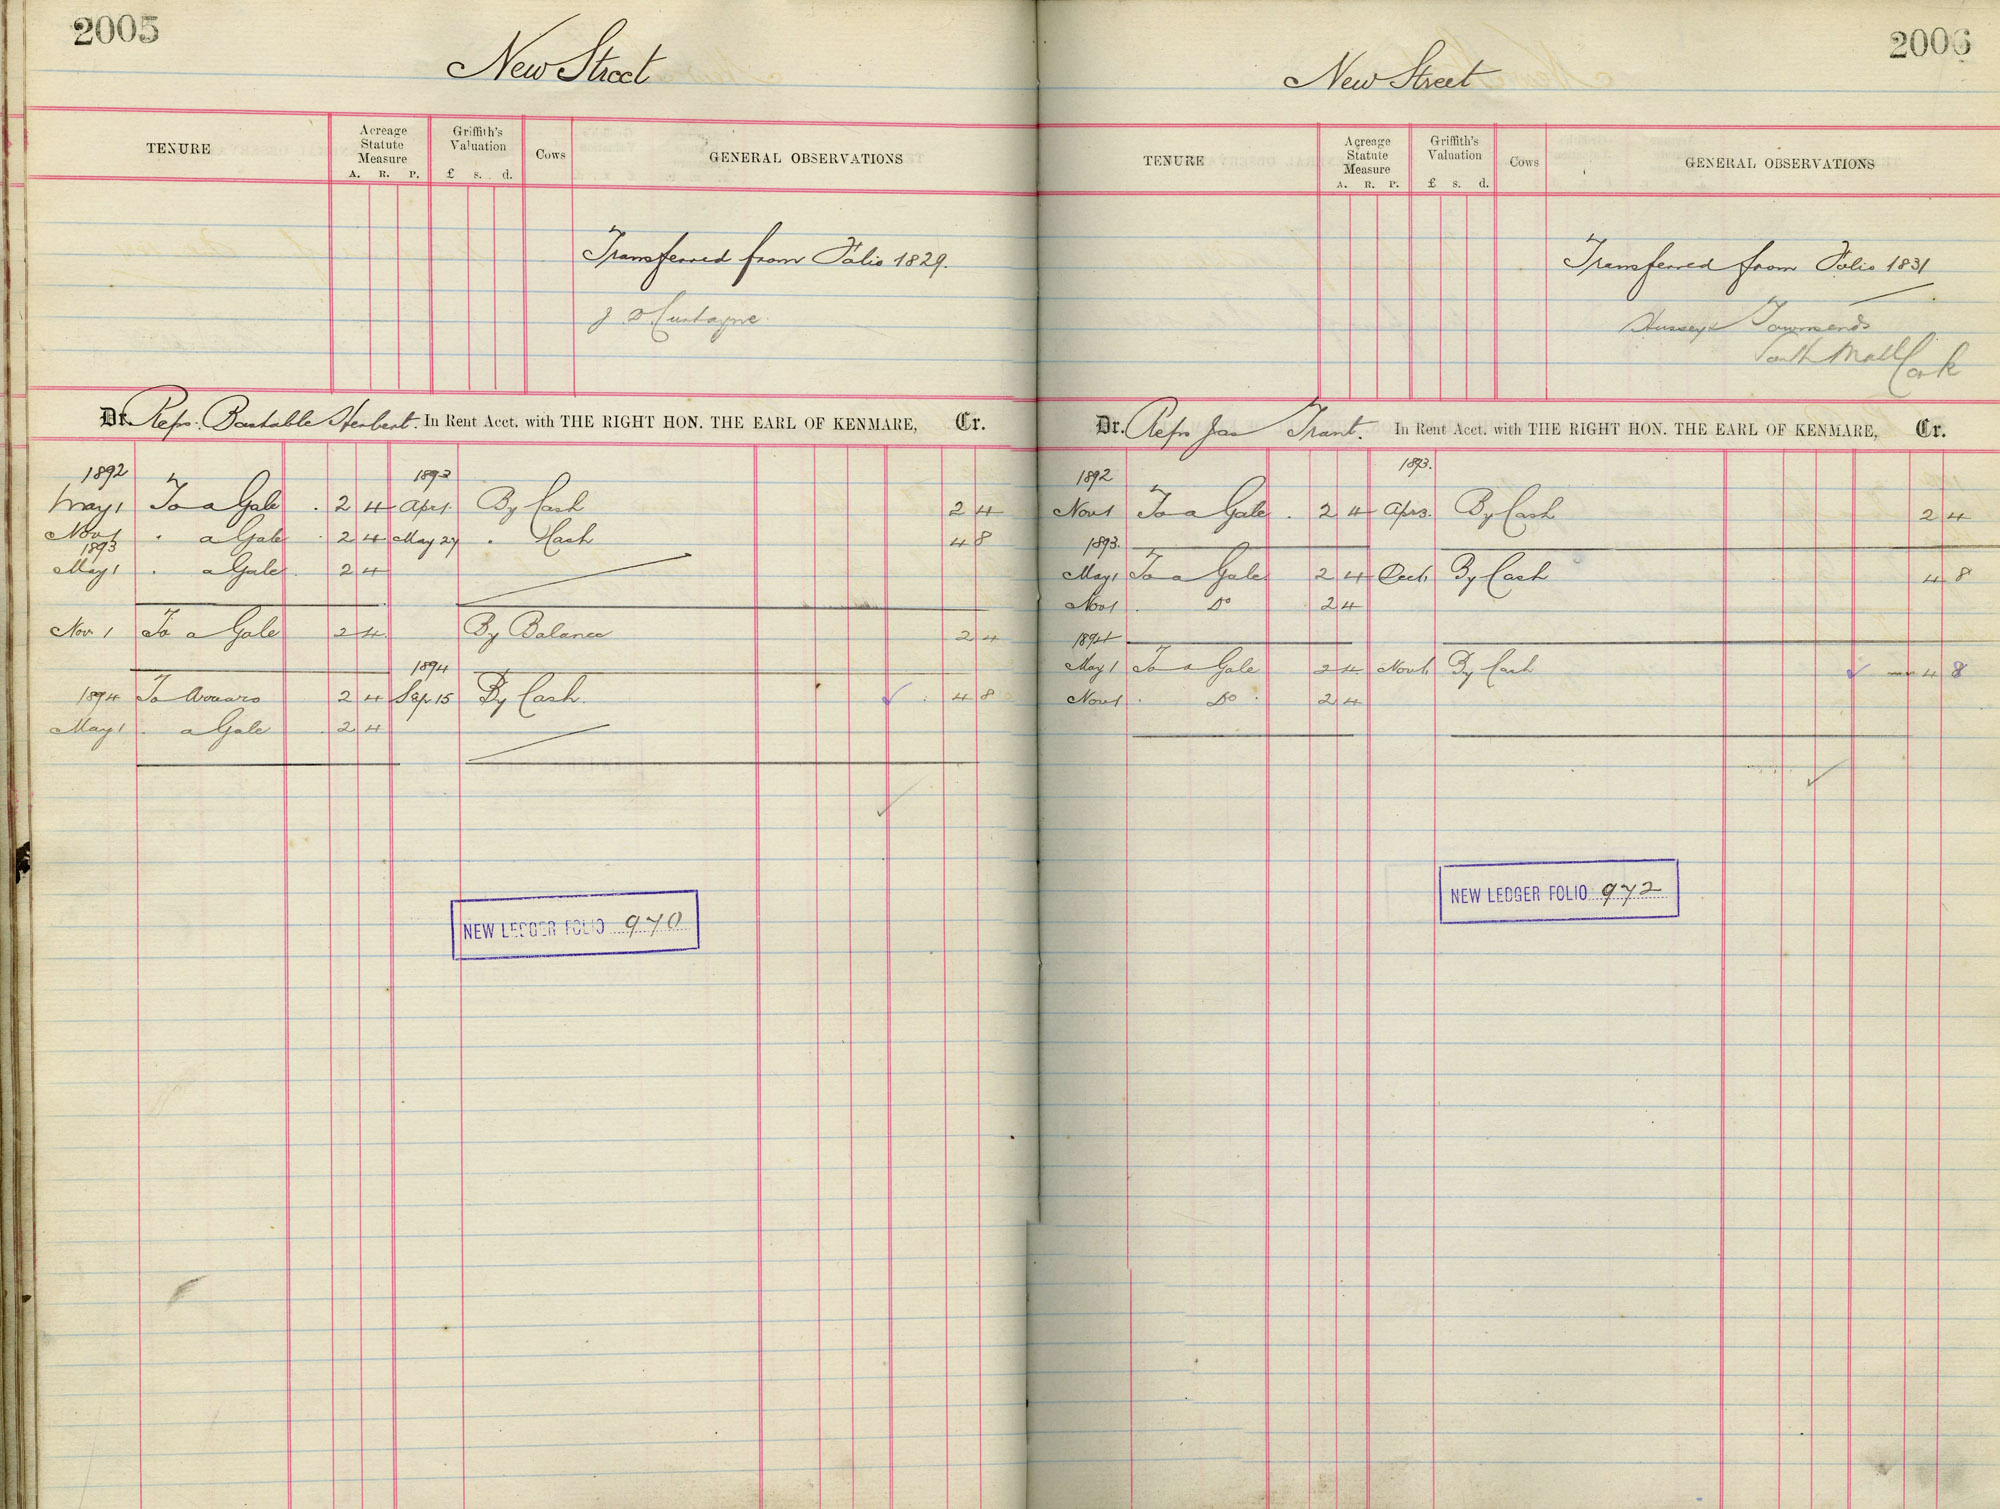 2005
New Street
TENURE
Acreage Statute Measure
A. R. P.
Griffith's Valuation
£ s. d.
Cows
GENERAL OBSERVATIONS
Transferred from Folio 1829.
Dr. Reps. Bastable Herbert. In Rent Acct. with THE RIGHT HON. THE EARL OF KENMARE, Cr.
1892 1893
May 1 To a Gale . 2 4 Apr 1. By Cash 2 4
Nov 1 . a Gale . 2 4 May 27 . Cash 4 8
1893
May 1 . a Gale . 2 4
Nov 1 To a Gale 2 4 By Balance 2 4
1894
1894 To Arrears 2 4 Sep 15 By Cash. 4 8
May 1 . a Gale . 2 4
NEW LEDGER FOLIO 970
2006
New Street
TENURE
Acreage Statute Measure
A. R. P.
Griffith's Valuation
£ s. d.
Cows
GENERAL OBSERVATIONS
Transferred from Folio 1831
Hussey & Townsends
South Mall
Cork
Dr. Reps Jas Trant. In Rent Acct. with THE RIGHT HON. THE EARL OF KENMARE, Cr.
1892 1893.
Nov 1 To a Gale . 2 4 Apr 3. By Cash 2 4
1893.
May 1 To a Gale 2 4 Oct 1 By Cash 4 8
Nov 1 . Do 2 4
1894
May 1 To a Gale 2 4 Nov 1 By Cash 4 8
Nov 1 . Do . 2 4
NEW LEDGER FOLIO 972